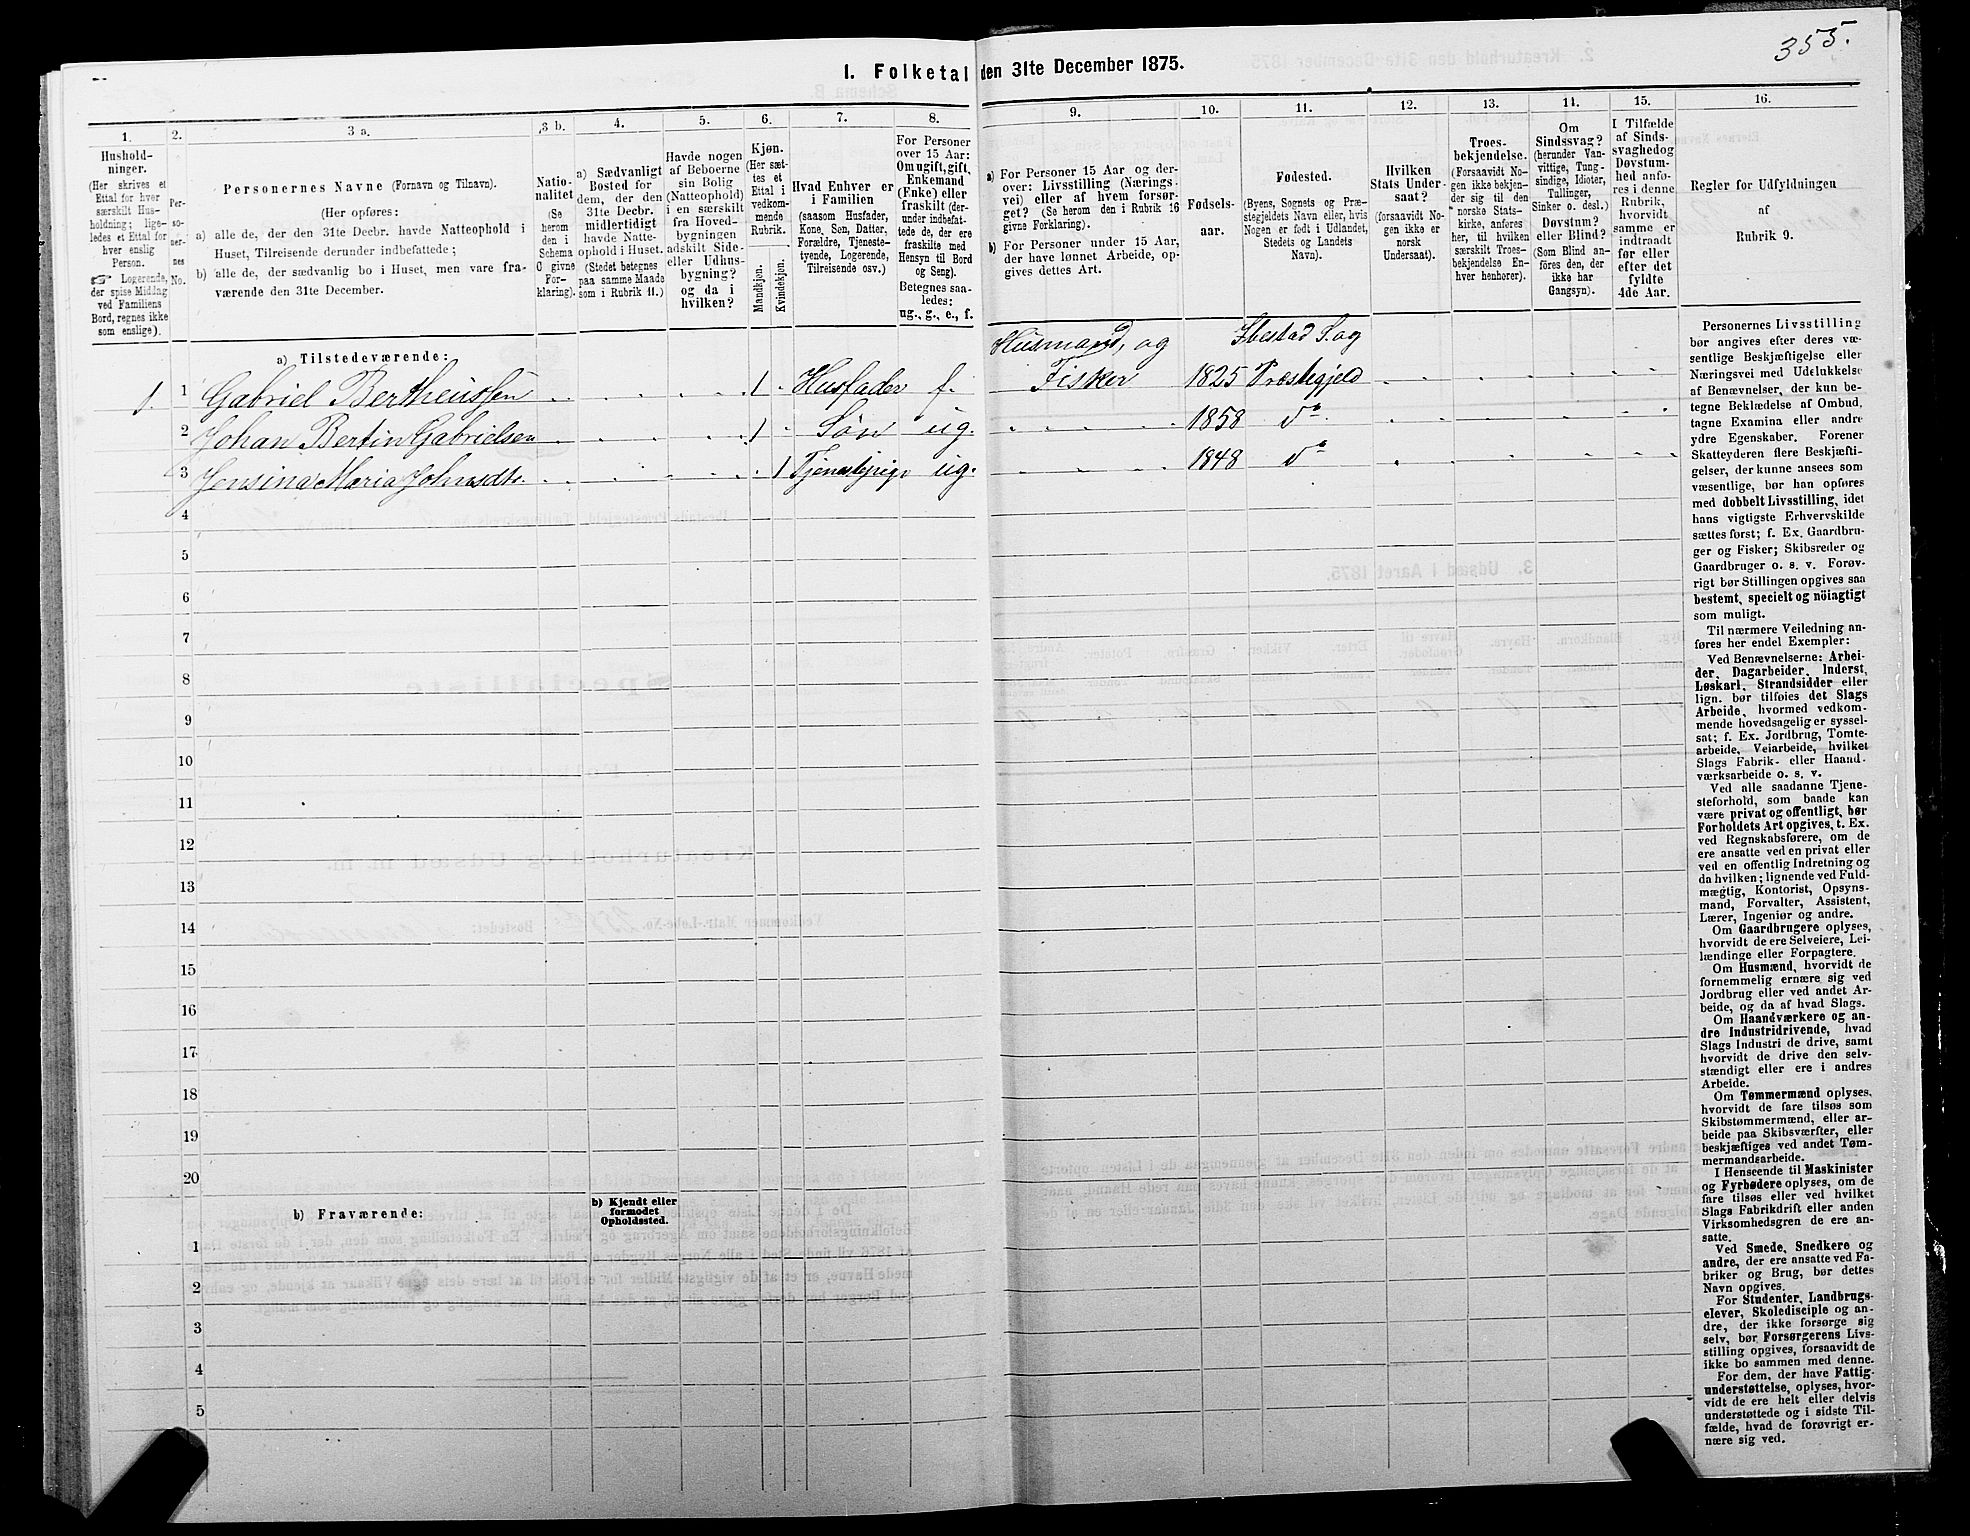 355.
I. Folketal den 31te December 1875.
1.
Hushold-
ninger.
(Her skrives et
Ettal for hver
særskilt Hus-
holdning; lige-
ledes et Ettal for
hver enslig
Person.
☞ Logerende,
der spise Middag
ved Familiens
Bord, regnes ikke
som enslige).
2.
Per-
so-
ner-
nes
No.
3 a.
Personernes Navne (Fornavn og Tilnavn).
(Her opføres:
a) alle de, der den 31te Decbr. havde Natteophold i
Huset, Tilreisende derunder indbefattede;
b) alle de, der sædvanlig bo i Huset, men vare fra-
værende den 31te December.
3 b.
Natio-
nalitet
(Se
herom
den i
Schema
C givne
For-
klaring).
4.
a) Sædvanligt
Bosted for
dem, der den
31te Decbr.
midlertidigt
havde Natte-
ophold i Huset.
(Stedet betegnes
paa samme Maade
som i Rubrik 11.)
5.
Havde nogen
af Beboerne
sin Bolig
(Natteophold)
i en særskilt
fra Hoved-
bygningen
adskilt Side-
eller Udhus-
bygning?
og da i
hvilken?
6.
Kjøn.
(Her sæt-
tes et
Ettal i
vedkom-
mende
Rubrik.
Mandkjøn.
Kvindekjøn.
7.
Hvad Enhver er
i Familien
(saasom Husfader,
Kone, Søn, Datter,
Forældre, Tjeneste-
tyende, Logerende,
Tilreisende osv.)
8.
For Personer
over 15 Aar:
Om ugift, gift,
Enkemand
(Enke) eller
fraskilt (der-
under indbefat-
tede de, der ere
fraskilte med
Hensyn til Bord
og Seng).
Betegnes saa-
ledes:
ug., g., e., f.
9.
a) For Personer 15 Aar og der-
over: Livsstilling (Nærings-
vei) eller af hvem forsør-
get? (Se herom den i Rubrik 16
givne Forklaring).
b) For Personer under 15 Aar,
der have lønnet Arbeide, op-
gives dettes Art.
10.
Fødsels-
aar.
11.
Fødested.
(Byens, Sognets og Præ-
stegjeldets Navn eller, hvis
Nogen er født i Udlandet,
Stedets og Landets
Navn).
12.
Hvilken
Stats Under-
saat?
(forsaavidt No-
gen ikke er
norsk
Undersaat).
13.
Troes-
bekjendelse.
(Forsaavidt No-
gen ikke bekjen-
der sig til den
norske Stats-
kirke, anføres
her, til hvilken
særskilt Troes-
bekjendelse En-
hver henhører).
14.
Om
Sindssvag?
(herunder Van-
vittige, Tung-
sindige, Idioter,
Tullinger,
Sinker o. desl.)
Døvstum?
eller Blind?
(Som Blind an-
føres den, der
ikke har
Gangsyn).
15.
I Tilfælde
af Sinds-
svaghed og
Døvstum-
hed anfø-
res i denne
Rubrik,
hvorvidt
samme er
indtraadt
før eller
efter det
fyldte
4de Aar.
16.
Regler for Udfyldningen
af
Rubrik 9.
a) Tilstedeværende:
Husmand, og Ibestad S. og
1. 1 Gabriel Bertheussen 1 Husfader f. Fisker 1825 Præstegjeld
2 Johan Bertin Gabrielsen 1 Søn ug. 1858 do
3 Jensina Maria Johnsdtr. 1 Tjenestepige ug. 1848 do
4
5
6
7
8
9
10
11
12
13
14
15
16
17
18
19
20
b) Fraværende:
b) Kjendt eller
formodet
Opholdssted.
1
2
3
4
5
Personernes Livsstilling
bør angives efter deres væ-
sentlige Beskjæftigelse eller
Næringsvei med Udelukkelse
af Benævnelser, der kun be-
tegne Beklædelse af Ombud,
tagne Examina eller andre
ydre Egenskaber. Forener
Skatteyderen flere Beskjæfti-
gelser, der kunne ansees som
væsentlige, bør han opføres
med dobbelt Livsstilling, idet
hans vigtigste Erhvervskilde
sættes først; f. Ex. Gaardbru-
ger og Fisker; Skibsreder og
Gaardbruger o. s. v. Forøv-
rigt bør Stillingen opgives saa
bestemt, specielt og nöiagtigt
som muligt.
Til nærmere Veiledning an-
føres her endel Exempler:
Ved Benævnelserne: Arbei-
der, Dagarbeider, Inderst,
Løskarl, Strandsidder eller
lign. bør tilføies det Slags
Arbeide, hvormed vedkom-
mende hovedsagelig er syssel-
sat; f. Ex. Jordbrug, Tomte-
arbeide, Veiarbeide, hvilket
Slags Fabrik- eller Haand-
værksarbeide o. s. v.
Ved alle saadanne Tjene-
steforhold, som baade kan
være privat og offentligt, bør
Forholdets Art opgives, t. Ex.
ved Regnskabsførere, om de
ere ansatte ved en privat eller
ved en offentlig Indretning og
da hvilken; lignende ved Fuld-
mægtig, Kontorist, Opsyns-
mand, Forvalter, Assistent,
Lærer, Ingeniør og andre.
Om Gaardbrugere oplyses,
hvorvidt de ere Selveiere, Lei-
lændinge eller Forpagtere.
Om Husmænd, hvorvidt de
fornemmelig ernære sig ved
Jordbrug eller ved andet Ar-
beide, og da af hvad Slags.
Om Haandværkere og an-
dre Industridrivende, hvad
Slags Industri de drive, samt
hvorvidt de drive den selv-
stændigt eller ere i andres
Arbeide.
Om Tømmermænd oplyses,
hvorvidt de fare tilsøs som
Skibstømmermænd, eller ar-
beide paa Skibsværfter, eller
beskjæftiges ved andet Tøm-
mermandsarbeide.
I Henseende til Maskinister
og Fyrbødere oplyses, om de
fare tilsøs eller ved hvilket
Slags Fabrikdrift eller anden
Virksomhedsgren de ere an-
satte.
Ved Smede, Snedkere og
andre, der ere ansatte ved Fa-
briker og Brug, bør dettes
Navn opgives.
For Studenter, Landbrugs-
elever, Skoledisciple og an-
dre, der ikke forsørge sig
selv, bør Forsørgerens Livs-
stilling opgives, forsaavidt de
ikke bo sammen med denne.
For dem, der have Fattig-
understøttelse, oplyses, hvor-
vidt de ere helt eller delvis
understøttede og i sidste Til-
fælde, hvad de forøvrigt er-
nære sig ved.